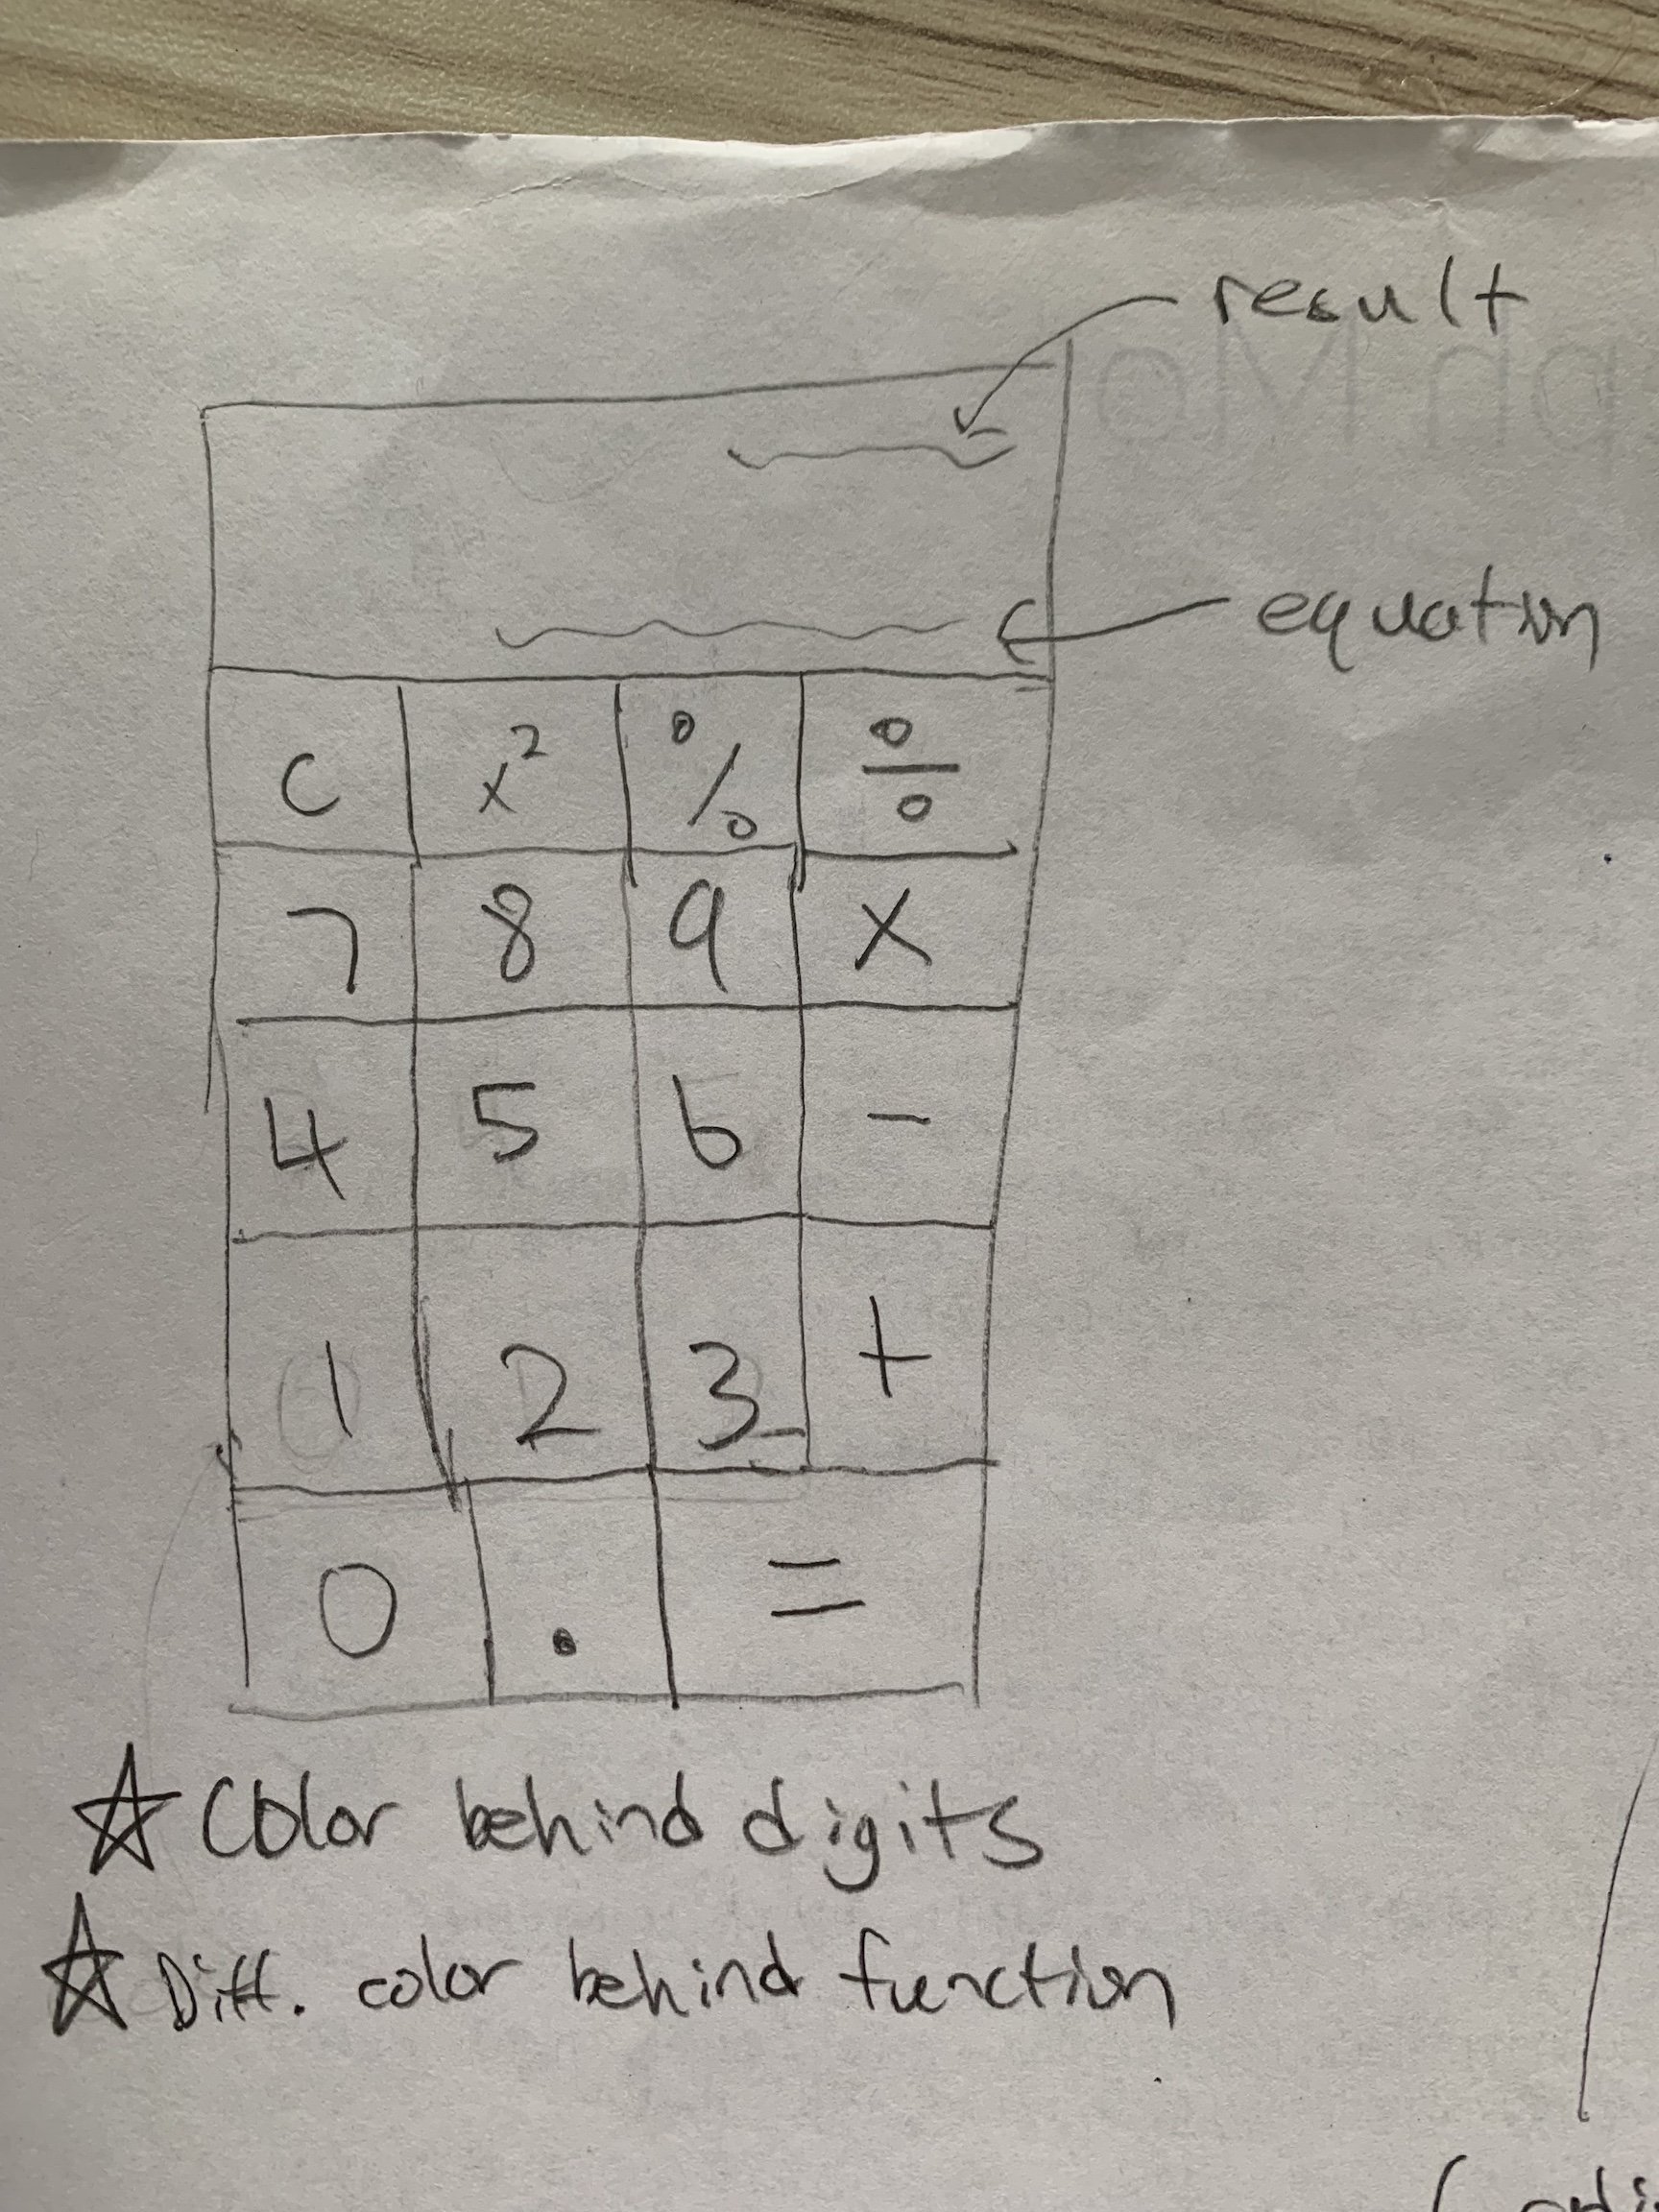 result
equation
C x² % ÷
7 8 9 ×
4 5 6 -
1 2 3 +
0 . =
☆ Color behind digits
☆ Diff. color behind function